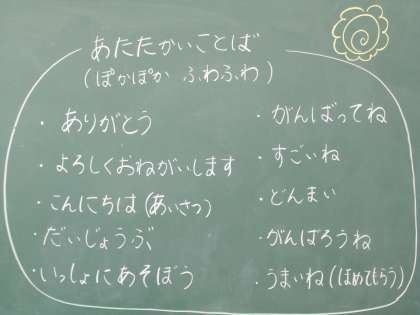 あたたかいことば
(ぽかぽか ふわふわ)
・ありがとう
・よろしくおねがいします
・こんにちは(あいさつ)
・だいじょうぶ
・いっしょにあそぼう
・がんばってね
・すごいね
・どんまい
・がんばろうね
・うまいね(ほめてもらう)